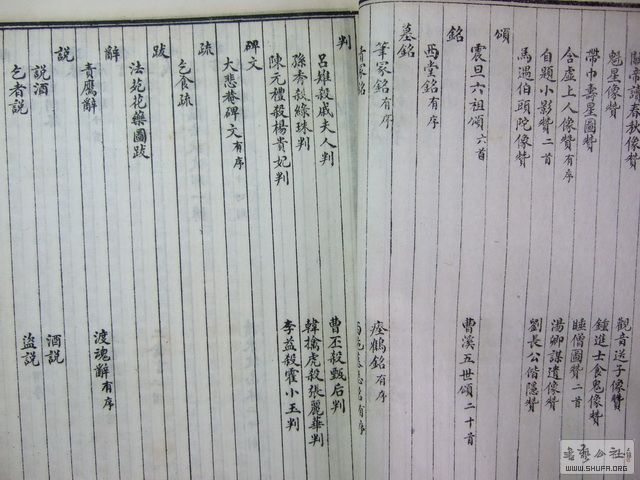 讀春秋像贊　觀音送子像贊
魁星像贊　鍾進士食鬼像贊
帶巾壽星圖贊　睡僧圖贊二首
含虛上人像贊有序　湯卿謀遺像贊
自題小影贊二首　劉長公偕隱贊
馬遇伯頭陀像贊
頌
震旦六祖頌六首　曹溪五世頌二十首
銘
西堂銘有序
墓銘
筆冢銘有序　瘞鶴銘有序
冢銘　銘有序
判
呂雉殺戚夫人判　曹丕殺甄后判
孫秀殺綠珠判　韓擒虎殺張麗華判
陳元禮殺楊貴妃判　李益殺霍小玉判
碑文
大悲菴碑文有序
疏
乞食疏
跋
法苑花藥圖跋
辭
責鷹辭　渡魂辭有序
說
說酒　酒說
乞者說　盜說
書法公社
WWW.SHUFA.ORG